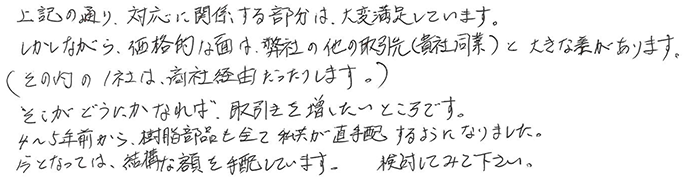 上記の通り、対応に関係する部分は、大変満足しています。
しかしながら、価格的な面は、弊社の他の取引先(貴社同業)と大きな差があります。
(その内の1社は、商社経由だったりします。)
そこがどうにかなれば、取引きを増したいところです。
4〜5年前から、樹脂部品も全て私共が直手配するようになりました。
今となっては、結構な額を手配しています。 検討してみて下さい。